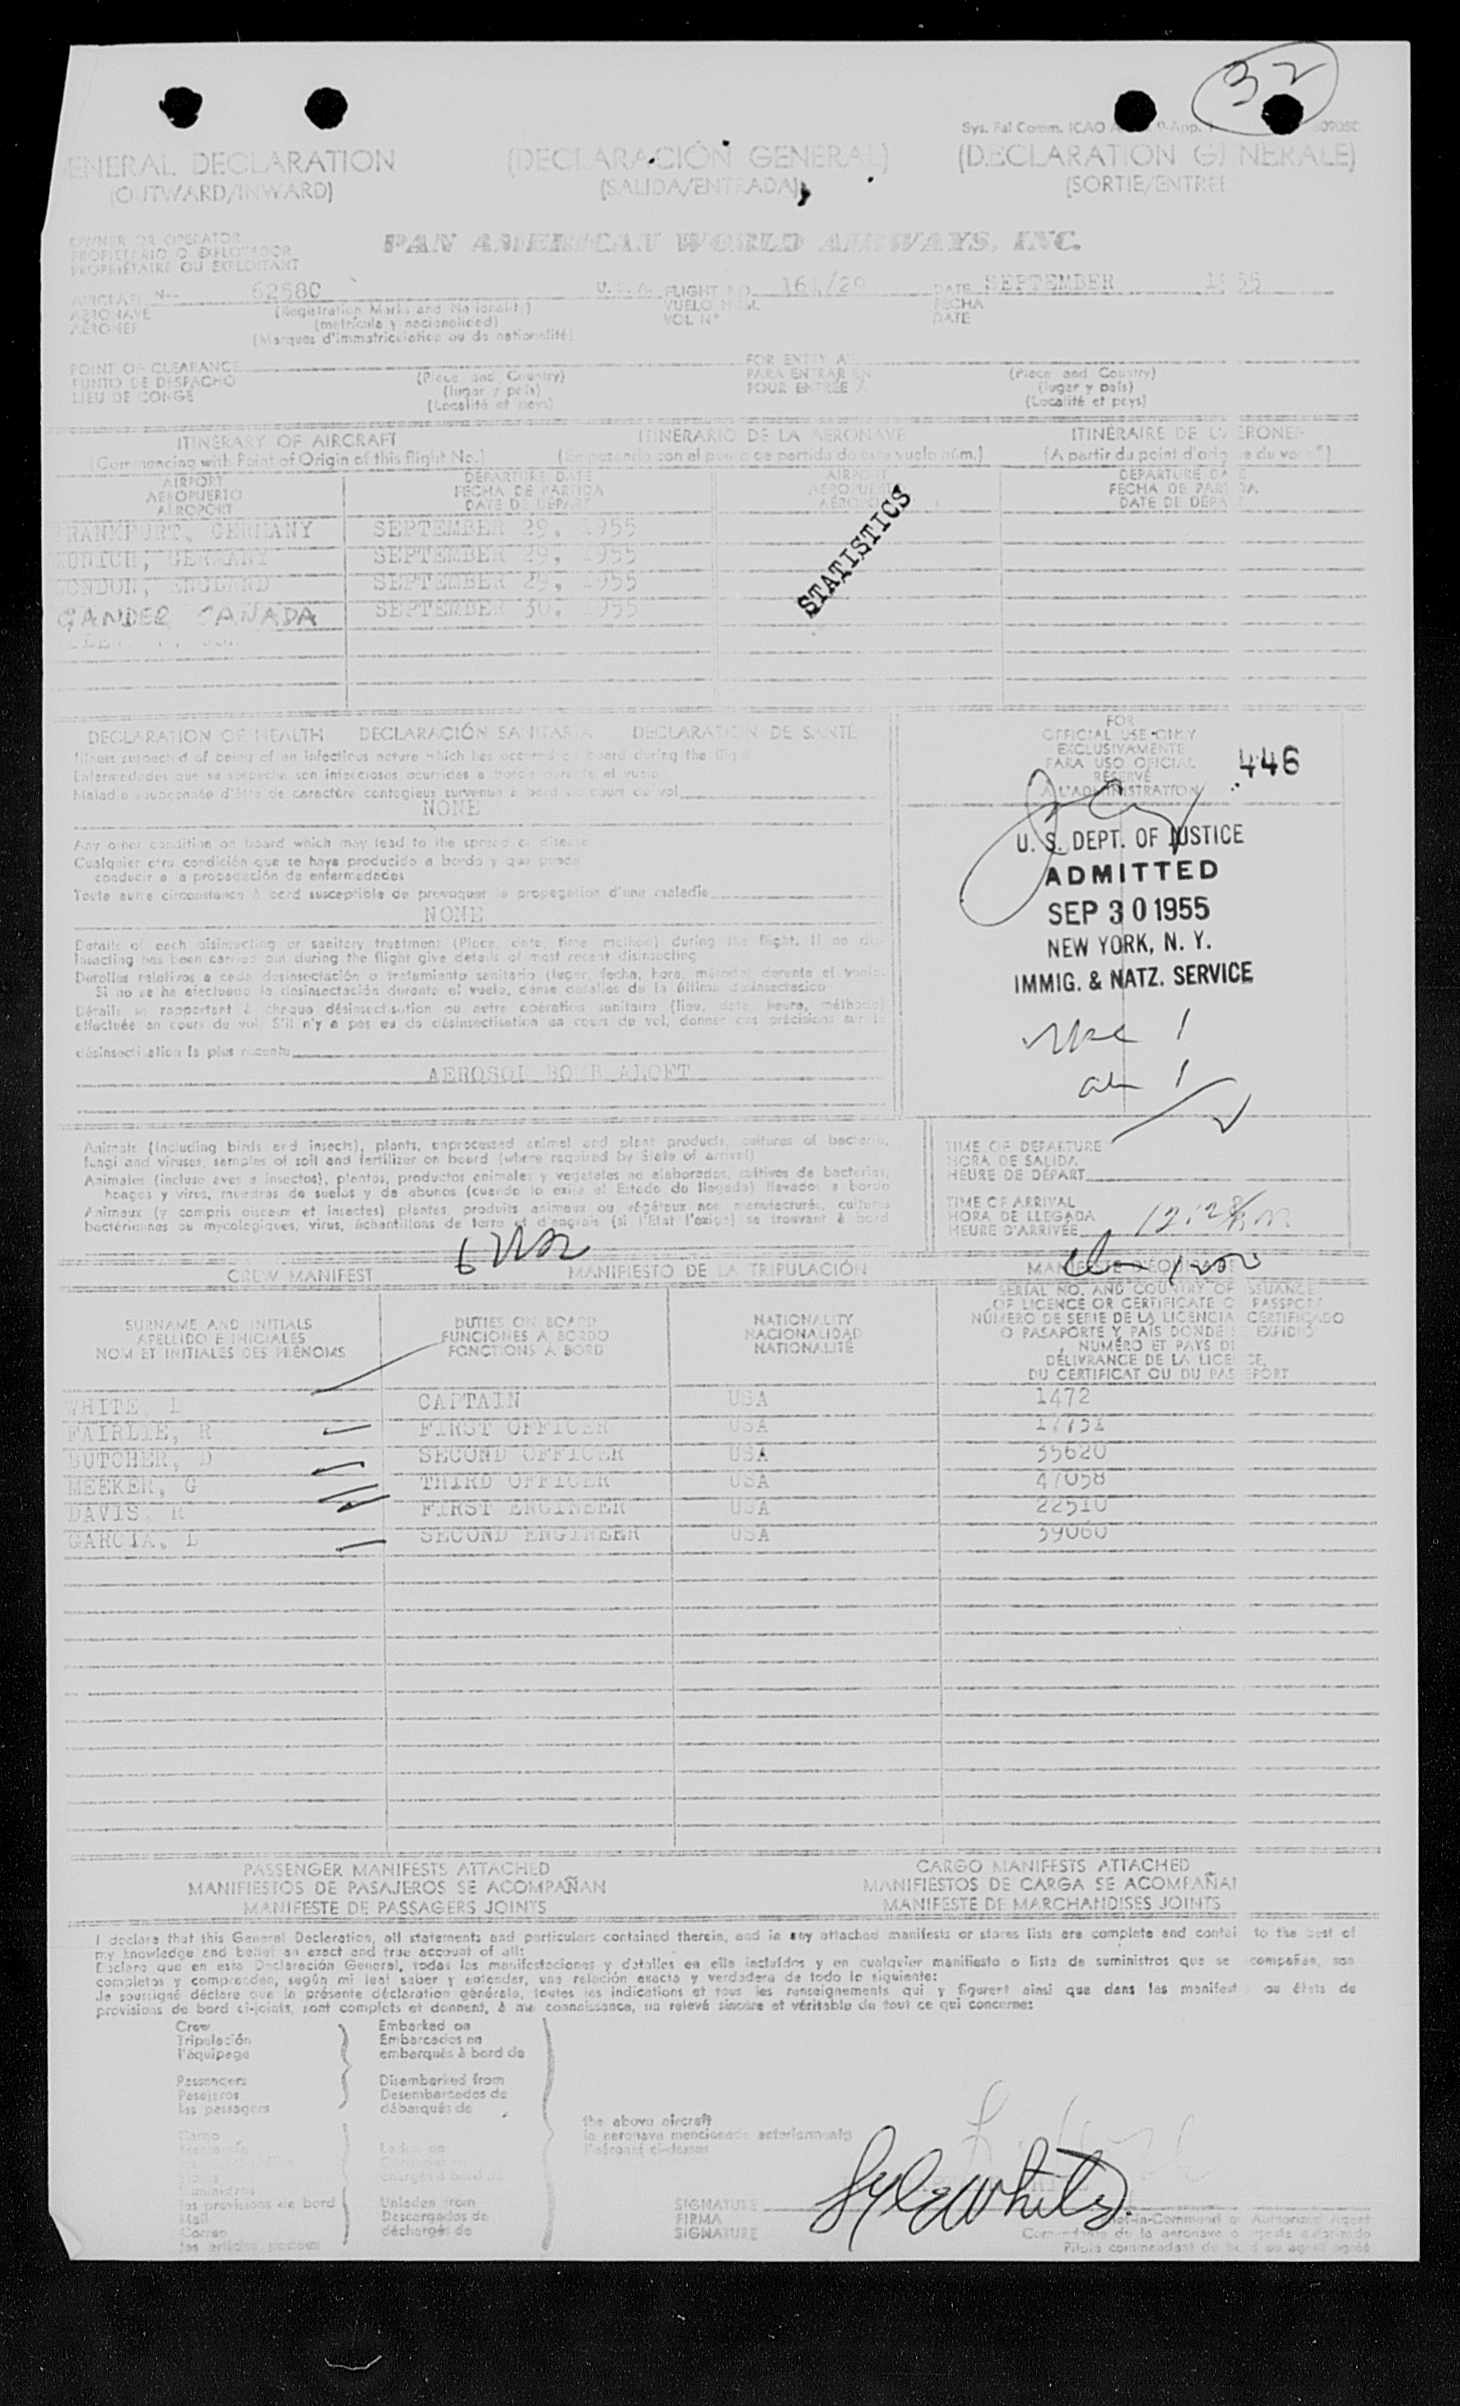 32
Sys. Fal Comm. ICAO
GENERAL DECLARATION (DECLARACIÓN GENERAL) (DECLARATION GENERALE)
(OUTWARD/INWARD) (SALIDA/ENTRADA) (SORTIE/ENTREE
OWNER OR OPERATOR
PROPIETARIO O EXPLOTADOR
PROPRIÉTAIRE OU EXPLOITANT
PAN AMERICAN WORLD AIRWAYS, INC.
AIRCRAFT N-- 62580 U.S.A. FLIGHT NO. 161/29 DATE SEPTEMBER 1955
AERONAVE (Registration Marks and Nationality) VUELO NÚM. FECHA
AÉRONEF (matrícula y nacionalidad) VOL Nº DATE
(Marques d'immatriculation ou de nationalité)
POINT OF CLEARANCE FOR ENTRY AT
PUNTO DE DESPACHO (Place and Country) PARA ENTRAR EN (Place and Country)
LIEU DE CONGÉ (lugar y país) POUR ENTRÉE À (lugar y país)
(Localité et pays) (Localité et pays)
ITINERARY OF AIRCRAFT ITINERARIO DE LA AERONAVE ITINÉRAIRE DE L'AÉRONEF
(Commencing with Point of Origin of this flight No.) (Empezando con el punto de partida de este vuelo núm.) (A partir du point d'origine du vol nº)
AIRPORT DEPARTURE DATE AIRPORT DEPARTURE DATE
AEROPUERTO FECHA DE PARTIDA AEROPUERTO FECHA DE PARTIDA
AÉROPORT DATE DE DÉPART AÉROPORT DATE DE DÉPART
FRANKFURT, GERMANY SEPTEMBER 29, 1955
ZURICH, GERMANY SEPTEMBER 29, 1955
LONDON, ENGLAND SEPTEMBER 29, 1955
GANDER CANADA SEPTEMBER 30, 1955
STATISTICS
DECLARATION OF HEALTH DECLARACIÓN SANITARIA DECLARATION DE SANTÉ
Illness suspected of being of an infectious nature which has occurred on board during the flight
Enfermedades que se sospeche son infecciosas ocurridas a bordo durante el vuelo
Maladie soupçonnée d'être de caractère contagieux survenue à bord au cours du vol
NONE
Any other condition on board which may lead to the spread of disease
Cualquier otra condición que se haya producido a bordo y que pueda
conducir a la propagación de enfermedades
Toute autre circonstance à bord susceptible de provoquer la propagation d'une maladie
NONE
Details of each disinsecting or sanitary treatment (Place, date, time, method) during the flight. If no dis-
insecting has been carried out during the flight give details of most recent disinsecting
Detalles relativos a cada desinsectación o tratamiento sanitario (lugar, fecha, hora, método) durante el vuelo.
Si no se ha efectuado la desinsectación durante el vuelo, dense detalles de la última desinsectación
Détails se rapportant à chaque désinsectisation ou autre opération sanitaire (lieu, date, heure, méthode)
effectuée en cours de vol. S'il n'y a pas eu de désinsectisation en cours de vol, donner des précisions sur la
désinsectisation la plus récente
AEROSOL BOMB ALOFT
FOR
OFFICIAL USE ONLY
EXCLUSIVAMENTE
PARA USO OFICIAL
RÉSERVÉ
À L'ADMINISTRATION
446
U. S. DEPT. OF JUSTICE
ADMITTED
SEP 30 1955
NEW YORK, N. Y.
IMMIG. & NATZ. SERVICE
Animals (including birds and insects), plants, unprocessed animal and plant products, cultures of bacteria,
fungi and viruses, samples of soil and fertilizer on board (where required by State of arrival)
Animales (incluso aves e insectos), plantas, productos animales y vegetales no elaborados, cultivos de bacterias,
hongos y virus, muestras de suelos y de abonos (cuando lo exija el Estado de llegada) llevados a bordo
Animaux (y compris oiseaux et insectes) plantes, produits animaux ou végétaux non manufacturés, cultures
bactériennes ou mycologiques, virus, échantillons de terre et d'engrais (si l'État l'exige) se trouvant à bord
TIME OF DEPARTURE
HORA DE SALIDA
HEURE DE DÉPART
TIME OF ARRIVAL
HORA DE LLEGADA
HEURE D'ARRIVÉE
CREW MANIFEST MANIFIESTO DE LA TRIPULACIÓN
SURNAME AND INITIALS DUTIES ON BOARD NATIONALITY SERIAL NO. AND COUNTRY OF ISSUANCE
APELLIDO E INICIALES FUNCIONES A BORDO NACIONALIDAD OF LICENCE OR CERTIFICATE O PASSPORT
NOM ET INITIALES DES PRÉNOMS FONCTIONS À BORD NATIONALITÉ NÚMERO DE SERIE DE LA LICENCIA CERTIFICADO
O PASAPORTE Y PAÍS DONDE EXPIDIÓ
NUMÉRO ET PAYS DE
DÉLIVRANCE DE LA LICENCE,
DU CERTIFICAT OU DU PASSEPORT
WHITE, L CAPTAIN USA 1472
FAIRLIE, R FIRST OFFICER USA 17751
BUTCHER, D SECOND OFFICER USA 35620
MEEKER, G THIRD OFFICER USA 47058
DAVIS, R FIRST ENGINEER USA 22510
GARCIA, L SECOND ENGINEER USA 39060
PASSENGER MANIFESTS ATTACHED CARGO MANIFESTS ATTACHED
MANIFIESTOS DE PASAJEROS SE ACOMPAÑAN MANIFIESTOS DE CARGA SE ACOMPAÑAN
MANIFESTE DE PASSAGERS JOINTS MANIFESTE DE MARCHANDISES JOINTS
I declare that this General Declaration, all statements and particulars contained therein, and in any attached manifests or stores lists are complete and contai to the best of
my knowledge and belief an exact and true account of all:
Declaro que en esta Declaración General, todas las manifestaciones y detalles en ella incluídos y en cualquier manifiesto o lista de suministros que se acompañan, son
completos y comprenden, según mi leal saber y entender, una relación exacta y verdadera de todo lo siguiente:
Je soussigné déclare que la présente déclaration générale, toutes les indications et tous les renseignements qui y figurent ainsi que dans les manifest ou états de
provisions de bord ci-joints, sont complets et donnent, à ma connaissance, un relevé sincère et véritable de tout ce qui concerne:
Crew Embarked on
Tripulación Embarcados en
l'équipage embarqués à bord de
Passengers Disembarked from
Pasajeros Desembarcados de
les passagers débarqués de
the above aircraft
la aeronave mencionada anteriormente
l'aéronef ci-dessus
Cargo
Laden on
Suministros
les provisions de bord Unladen from
Mail Descargados de
Correo déchargés de
SIGNATURE
FIRMA
SIGNATURE
Lyle White
Pilot-in-Command or Authorized Agent
Comandante de la aeronave o agente autorizado
Pilote commandant de bord ou agent agréé